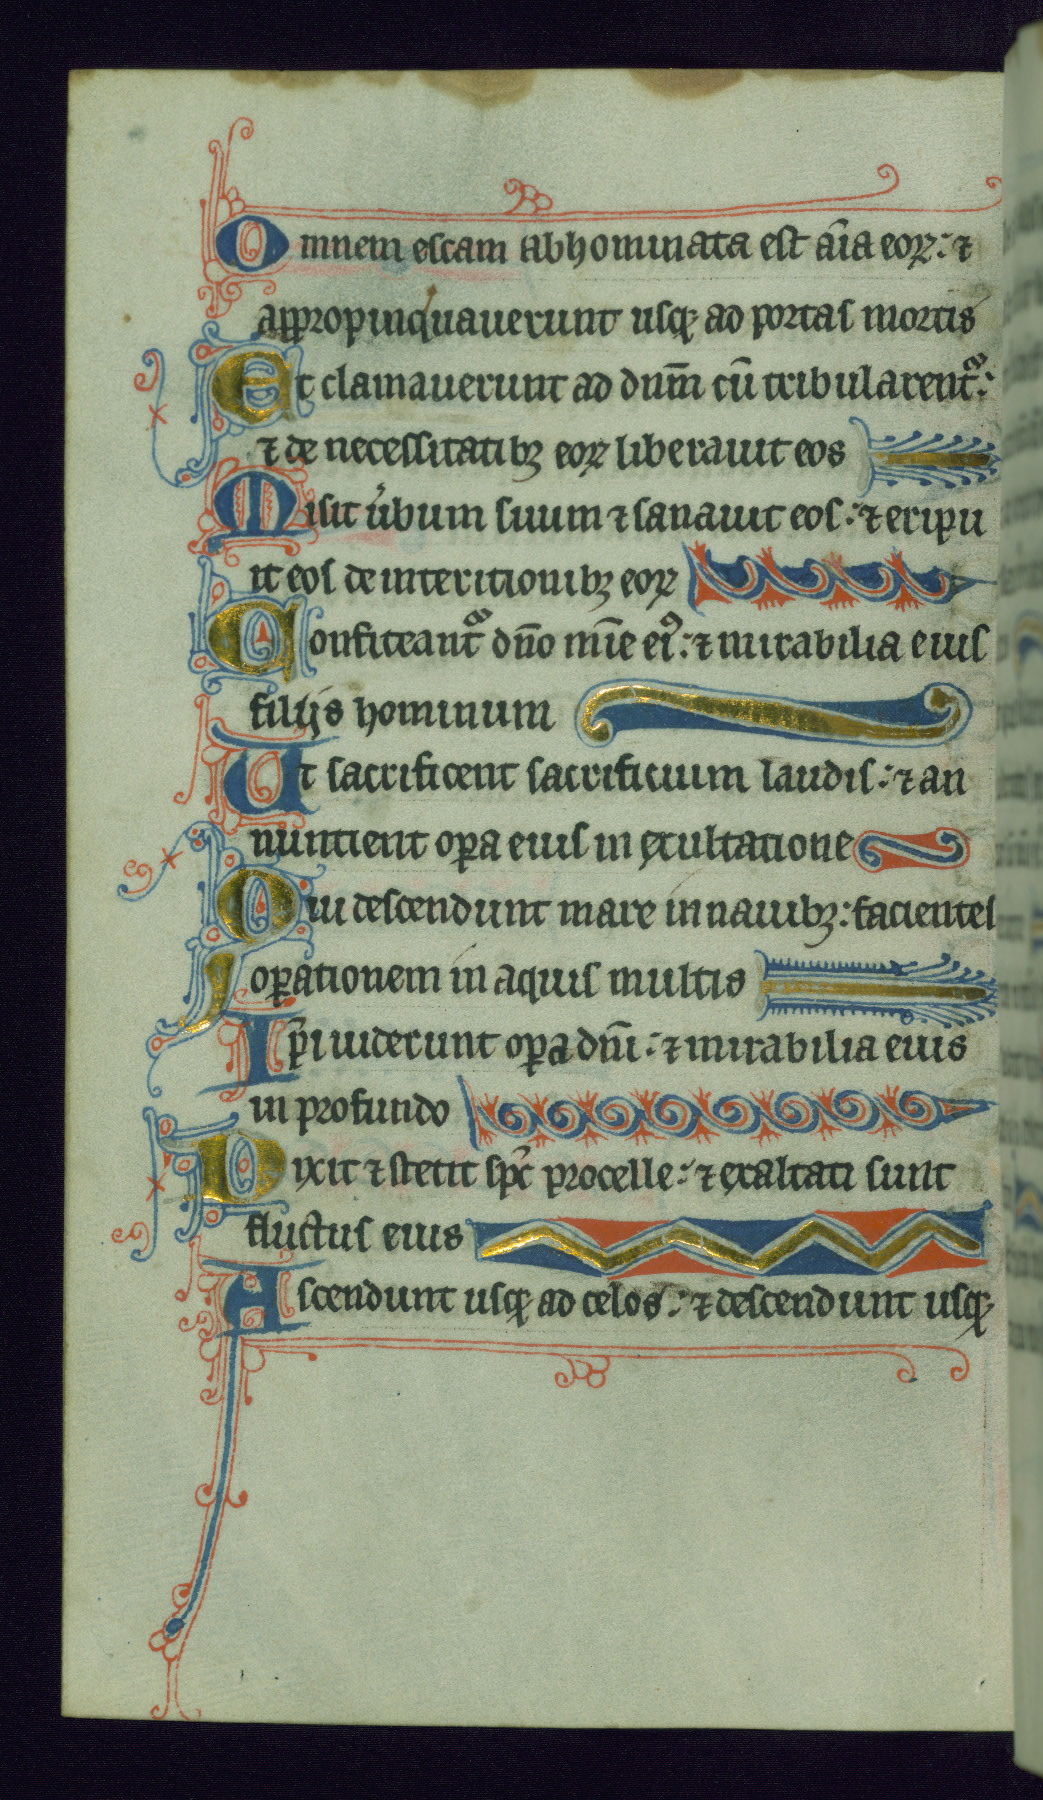 Omnem escam abhominata est aīa eoꝝ: ⁊
appropinquauerunt usqꝫ ad portas mortis
Et clamauerunt ad dnm̄ cū tribularentᷓ:
⁊ de necessitatibꝫ eoꝝ liberauit eos
Misit u̓bum suum ⁊ sanauit eos: ⁊ eripu
it eos de interitionibꝫ eoꝝ
Confiteantᷓ dn̄o mīe eiꝰ: ⁊ mirabilia eius
filijs hominum
Ut sacrificent sacrificium laudis: ⁊ an
nuntient oꝑa eius in exultatione
Qui descendunt mare in nauibꝫ: facientes
oꝑationem in aquis multis
Ip̄i uiderunt oꝑa dn̄i: ⁊ mirabilia eius
in profundo
Dixit ⁊ stetit sp̄c procelle: ⁊ exaltati sunt
fluctus eius
Ascendunt usqꝫ ad celos: ⁊ descendunt usqꝫ